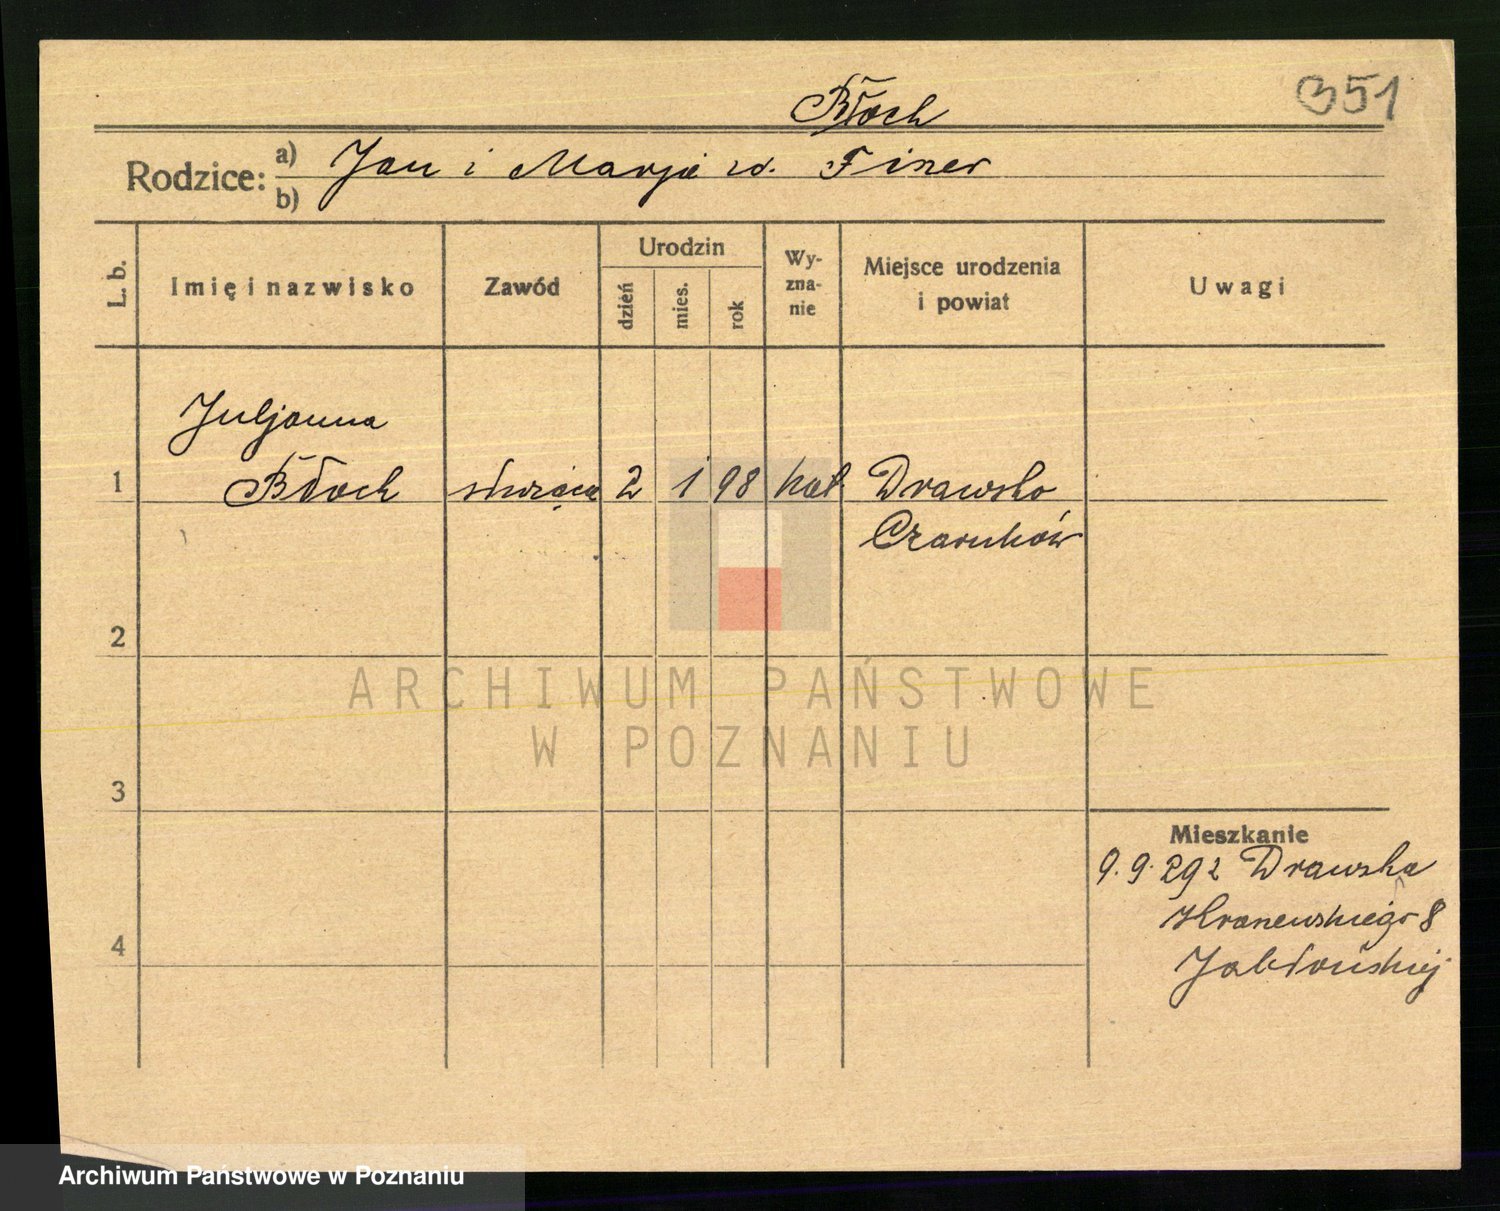 351
Błoch
Rodzice: a) Jan i Marja ur. Fizer
b)
L. b. Imię i nazwisko Zawód Urodzin dzień mies. rok Wyznanie Miejsce urodzenia i powiat Uwagi
Juljanna
1 Błoch służąca 2 1 98 kat. Drawsko
Czarnków
2
ARCHIWUM PAŃSTWOWE
W POZNANIU
3
Mieszkanie
9.9.29 z Drawska
8
4
Jabłońskiej
Archiwum Państwowe w Poznaniu